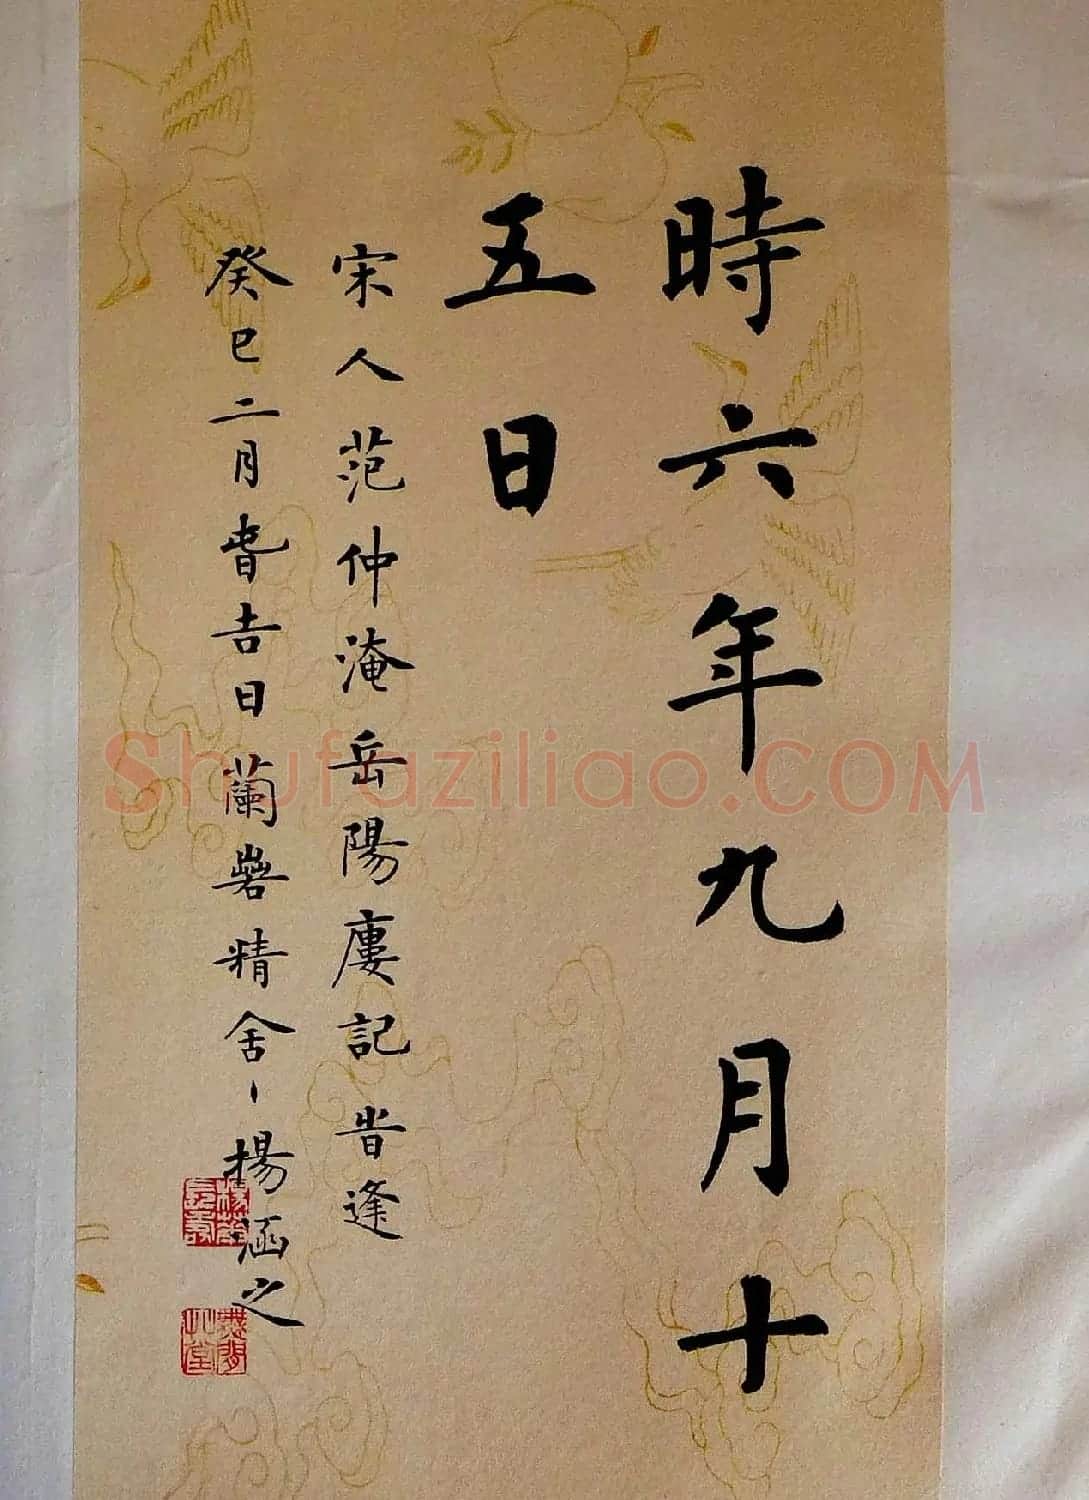 時六年九月十
五日
宋人范仲淹岳陽廔記旹逢
癸巳二月旾吉日蘭礐精舍丶楊涵之
Shufaziliao.COM